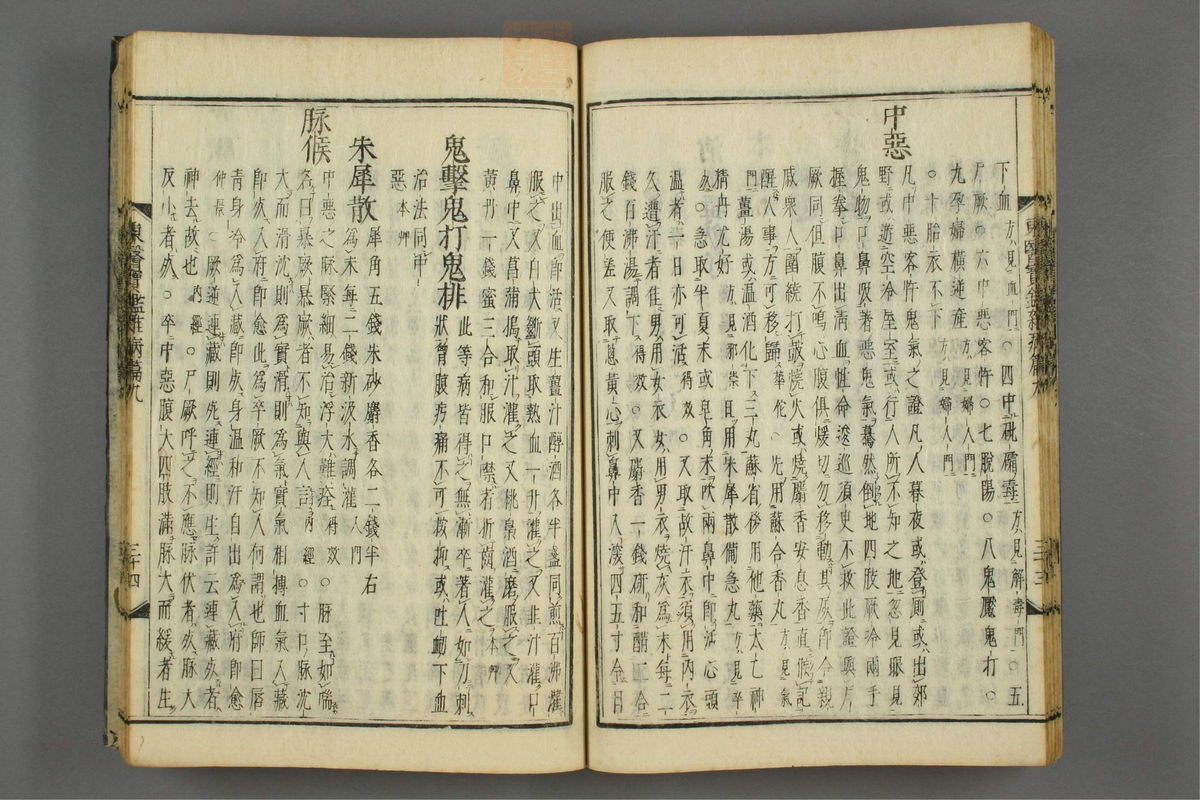 下血方見血門○四中砒礵毒方見解毒門○五
尸厥○六中惡客忤○七脫陽○八鬼魘鬼打○
九孕婦橫逆産方見婦人門
○十胎衣不下方見婦人門
中惡
凡中惡客忤鬼氣之證凡人暮夜或登厠或出郊
野或遊空冷屋室或行人所不知之地忽見眼見
鬼物口鼻吸著惡鬼氣驀然倒地四肢厥冷兩手
握拳口鼻出淸血性命逡巡須臾不救此證與尸
厥同但腹不鳴心腹俱煖切勿移動其死即令親
戚衆人圍繞打鼓燒火或燒麝香安息香直候記
醒人事方可移歸華佗○先用蘇合香丸方見氣
門薑湯或溫酒化下三丸蘇省後用他藥太乙神
精丹尤好方見邪祟且用朱犀散備急丸方見卒
死○急取半夏末或皂角末吹兩鼻中即活心頭
温者一日亦可活得效○又取故汗衣須用內衣
久遭汗者佳男用女衣女用男衣燒灰爲末每二
錢百沸湯調下得效○又麝香一錢硏和醋二合
服之便差又取葱黃心刺鼻中入深四五寸令目
中出血即活又生薑汁醇酒各半盞同煎百沸灌
服之又白犬斷頭取熱血一升灌之又韭汁灌口
鼻中又菖蒲搗取汁灌之又桃梟酒磨服之又
黃丹一錢蜜三合和服口噤者折齒灌之本草
鬼擊鬼打鬼排
此等病皆得之無漸卒著人如刀刺
狀胷腹疠痛不可按抑或吐衄下血
治法同中
惡本草
朱犀散
犀角五錢朱砂麝香各二錢半右
爲末每二錢新汲水調灌入門
脉候
中惡之脉緊細易治浮大難痊得效○脉至如喘
名曰暴厥暴厥者不知與人言內經○寸口脉沈
大而滑沈則爲實滑則爲氣實氣相搏血氣入藏
即死入府即愈此爲卒厥不知人何謂也師曰唇
青身冷爲入藏即死身温和汗自出爲入府即愈
仲景○厥逆連藏則死連經則生許云連藏死者
神去故也內經○尸厥呼之不應脉伏者死脉大
反小者死○卒中惡腹大四肢滿脉大而緩者生
東醫寶鑑雜病篇九
三十三
東醫寶鑑雜病篇九
三十四